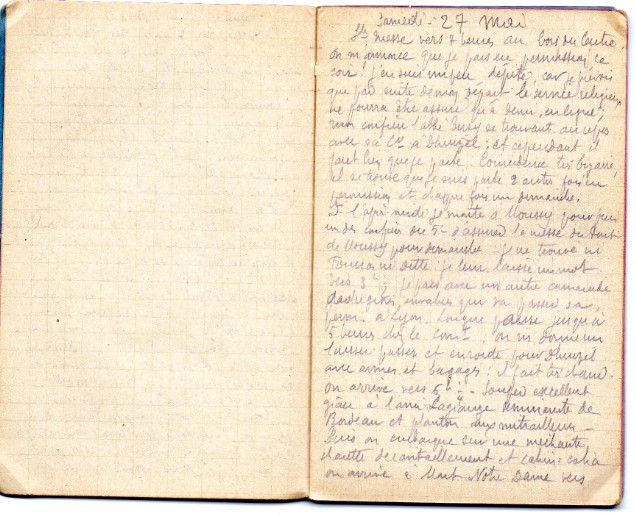 Samedi - 27 Mai
Ste Messe vers 7 heures au bois du Centre,
on m'annonce que je pars en permission ce
soir : j'en suis un peu dépité, car je prévois
que par suite de mon départ le service religieux
ne pourra être assuré qu'à demi, en ligne,
mon confrère l'abbé se trouvant au repos
avec sa Cie à Dhuizel ; et cependant il
faut bien que je parte. Coincidence très bizarre,
il se trouve que je suis parti 2 autres fois en
permission et chaque fois un dimanche.
l'après-midi je monte à Moussy pour prier
un des confrères du 5e d'assurer la messe du
de Moussy pour demain : je ne trouve ni
ni je leur laisse un mot
vers 3h je pars avec un autre camarade
qui va passer sa
perm. à Lyon. Longue pause jusqu'à
5 heures chez le on m donne un
laisser passer et en route pour Dhuizel
avec armes et bagages : il fait très chaud.
on arrive vers 6h - Souper excellent
grâce à l'ami Lagrange de
Bordeau et planton aux mitrailleurs -
Puis on embarque sur une méchante
charette de ravitaillement et cahin-caha
on arrive à Mont Notre Dame vers